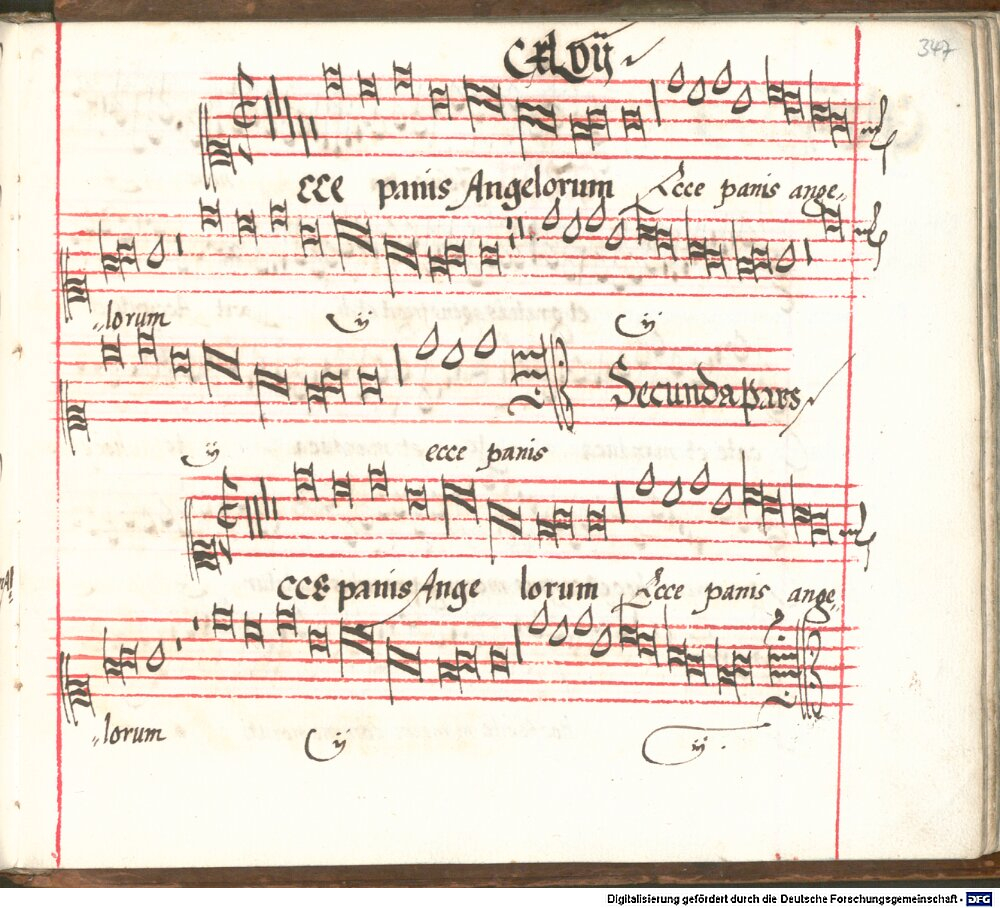 CXLVIJ
347
CCE panis Angelorum Ecce panis ange„
„lorum ij ij
Secunda pars
ij ecce panis
CCE panis Ange lorum Ecce panis ange„
„lorum ij ij.
Digitalisierung gefördert durch die Deutsche Forschungsgemeinschaft - DFG